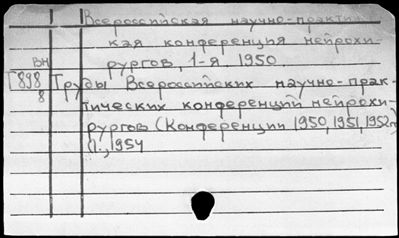 Всероссийская научно-практи-
ческая конференция нейрохи-
рургов, 1-я. 1950.
ВН
Г898
8
Труды Всероссийских научно-прак-
тических конференций нейрохи-
рургов (Конференции 1950, 1951, 1952гг.
Л., 1954